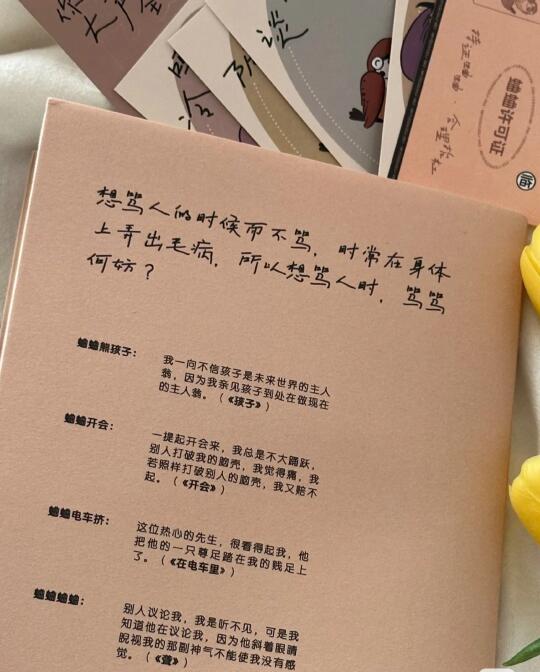 蛐蛐许可证
临
想骂人的时候而不骂，时常在身体
上弄出毛病，所以想骂人时，骂骂
何妨？
蛐蛐熊孩子：
我一向不信孩子是未来世界的主人
翁，因为我亲见孩子到处在做现在
的主人翁。（《孩子》）
蛐蛐开会：
一提起开会来，我总是不大踊跃，
别人打破我的脑壳，我觉得痛，我
若照样打破别人的脑壳，我又赔不
起。（《开会》）
蛐蛐电车挤：
这位热心的先生，很看得起我，他
把他的一只尊足踏在我的贱足上
了。（《在电车里》）
蛐蛐蛐蛐：
别人议论我，我是听不见，可是我
知道他在议论我，因为他斜着眼睛
睨视我的那副神气不能使我没有感
觉。（《聋》）